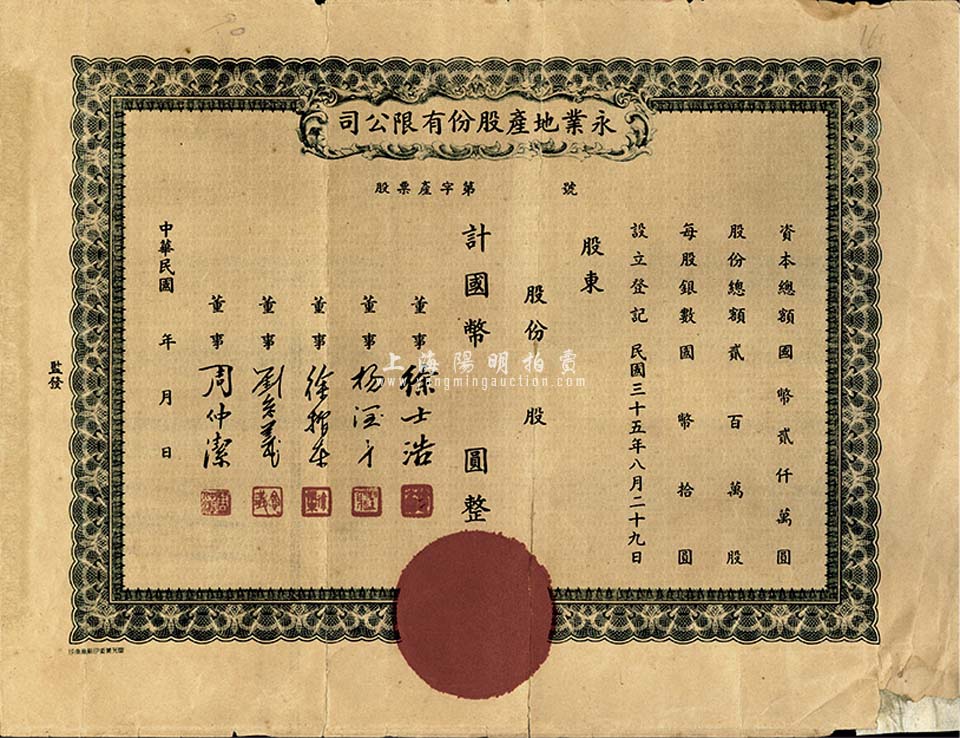 永業地產股份有限公司
股票產字第 號
資本總額國幣貳仟萬圓
股份總額貳百萬股
每股銀數國幣拾圓
設立登記民國三十五年八月二十九日
股東
股份 股
計國幣 圓整
董事 徐士浩
董事 楊
董事 徐
董事 劉
董事 周仲潔
中華民國 年 月 日
監發
上海陽明拍賣
www.yangmingauction.com
16